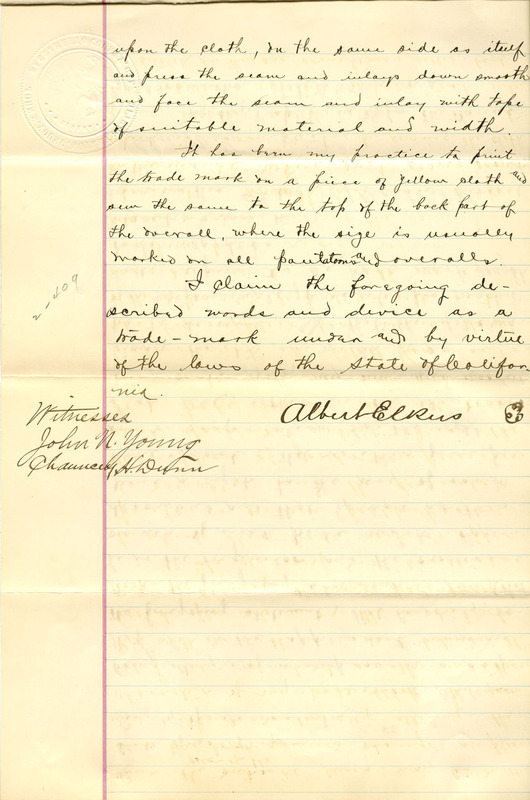 upon the cloth, on the same side as itself
and press the seam and inlays down smooth
and face the seam and inlay with tape
of suitable material and width.
It has been my practice to print
the trade mark on a piece of yellow cloth and
sew the same to the top of the back part of
the overall, where the size is usually
marked on all pantaloons and overalls.
I claim the foregoing de-
scribed words and device as a
trade-mark under and by virtue
of the laws of the State of Califor
nia.
2-409
Albert Elkus
3
Witnesses
John N. Young
Chauncey H. Dunn